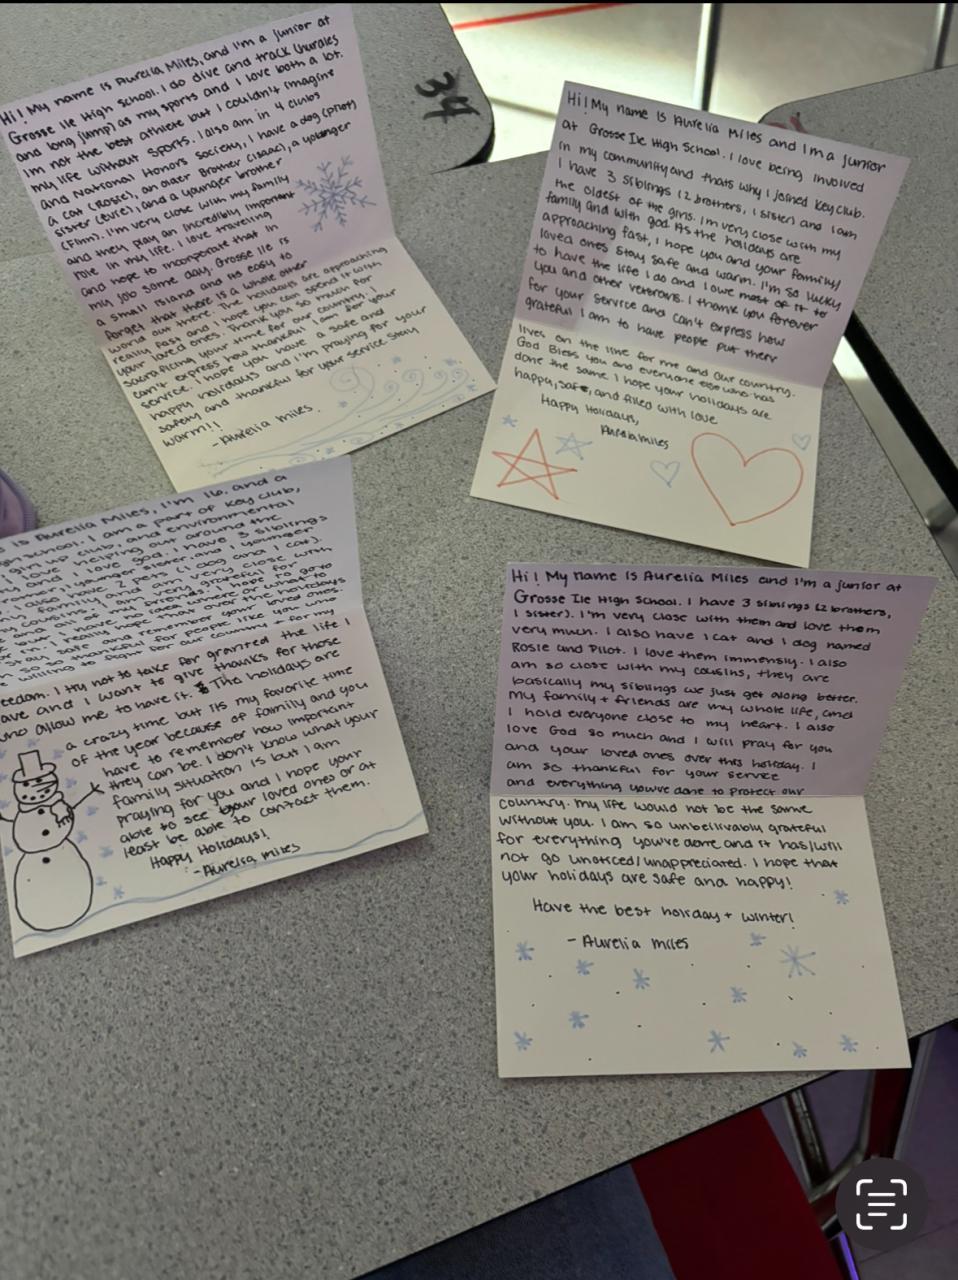 Hi! My name is Aurelia Miles, and I'm a junior at
Grosse Ile High School. I do dive and track (hurdles
and long jump) as my sports and I love both a lot.
I'm not the best athlete but I couldn't imagine
my life without sports. I also am in 4 clubs
and National Honors Society, I have a dog (Pilot)
a cat (Rosie), an older brother (Isaac), a younger
sister (Evie), and a younger brother
(Finn). I'm very close with my family
and they play an incredibly important
role in my life. I love traveling
and hope to incorporate that in
my job some day. Grosse Ile is
a small island and its easy to
forget that there is a whole other
world out there. The holidays are approaching
really fast and I hope you can spend it with
your loved ones. Thank you so much for
sacraficing your time for our country. I
can't express how thankful I am for your
service. I hope you have a safe and
happy holidays and I'm praying for your
safety and thankful for your service stay
warm!!
-Aurelia miles
34
Hi! My name is Aurelia Miles and I'm a junior
at Grosse Ile High School. I love being involved
in my community and thats why I joined Key Club.
I have 3 siblings (2 brothers, 1 sister) and I am
the oldest of the girls. Im very close with my
family and with god. As the holidays are
approaching fast, I hope you and your family/
loved ones stay safe and warm. I'm so lucky
to have the life I do and I owe most of it to
you and other veterans. I thank you forever
for your service and can't express how
grateful I am to have people put their
lives on the line for me and our country.
God Bless you and everyone else who has
done the same. I hope your holidays are
happy, safe, and filled with love
Happy Holidays,
Aurelia miles
is Aurelia Miles, I'm 16, and a
school. I am a part of Key Club,
girl up club, and environmental
I love helping out around the
and I love god. I have 3 siblings
younger sister, and 1 younger
I also have 2 pets (1 dog and 1 cat).
family and am very close with
cousins,
and all of my friends. grateful for
but I have no idea where or what to
in. I really hope that over the holidays
stay safe and remember your loved ones.
so so thankful for people like you who
willing to fight for our country + for my
eedom. I try not to take for granted the life I
ave and I want to give thanks for those
who allow me to have it. The holidays are
a crazy time but its my favorite time
of the year because of family and you
have to remember how important
they can be. I don't know what your
family situation is but I am
praying for you and I hope your
able to see your loved ones or at
least be able to contact them.
Happy Holidays!
-Aurelia miles
Hi! My name is Aurelia Miles and I'm a junior at
Grosse Ile High School. I have 3 siblings (2 brothers,
1 sister). I'm very close with them and love them
very much. I also have 1 cat and 1 dog named
Rosie and Pilot. I love them immensly. I also
am so close with my cousins, they are
basically my siblings we just get along better.
My family + friends are my whole life, and
I hold everyone close to my heart. I also
love God so much and I will pray for you
and your loved ones over this holiday. I
am so thankful for your service
and everything you've done to protect our
country. My life would not be the same
without you. I am so unbelivably grateful
for everything you've done and it has/will
not go unnoticed/unappreciated. I hope that
your holidays are safe and happy!
Have the best holiday + winter!
- Aurelia miles